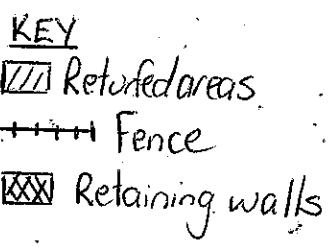 KEY
Returfed areas
Fence
Retaining walls